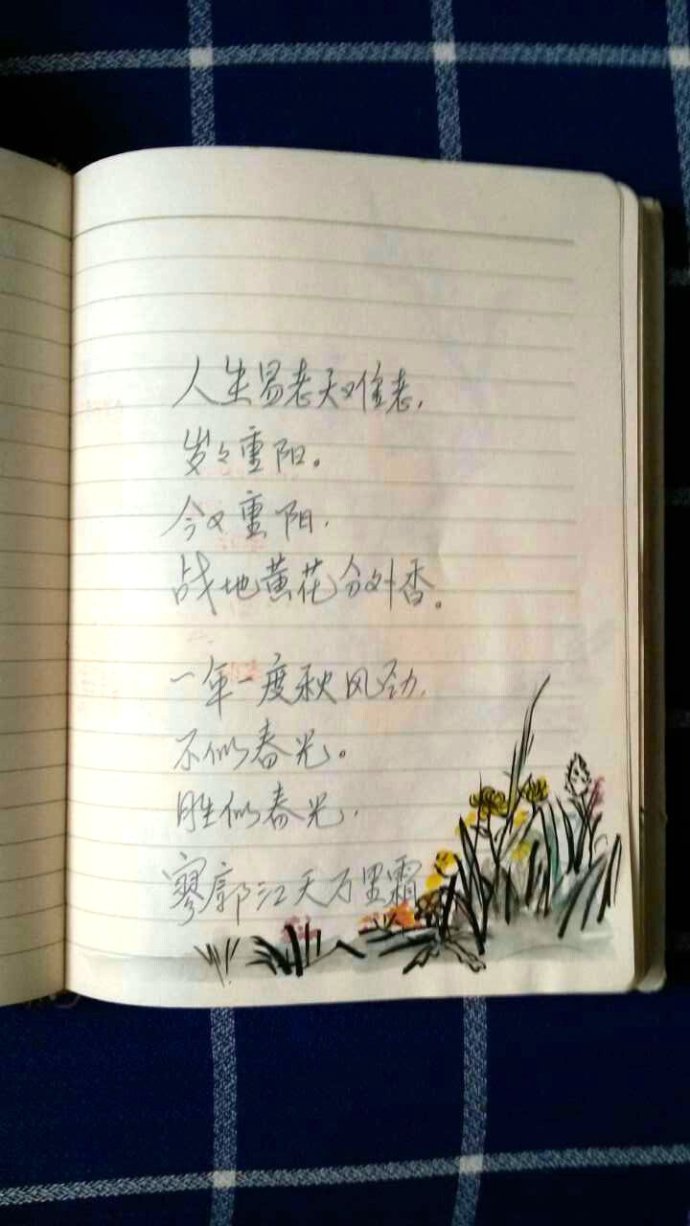 人生易老天难老，
岁々重阳。
今又重阳，
战地黄花分外香。
一年一度秋风劲，
不似春光。
胜似春光，
寥廓江天万里霜